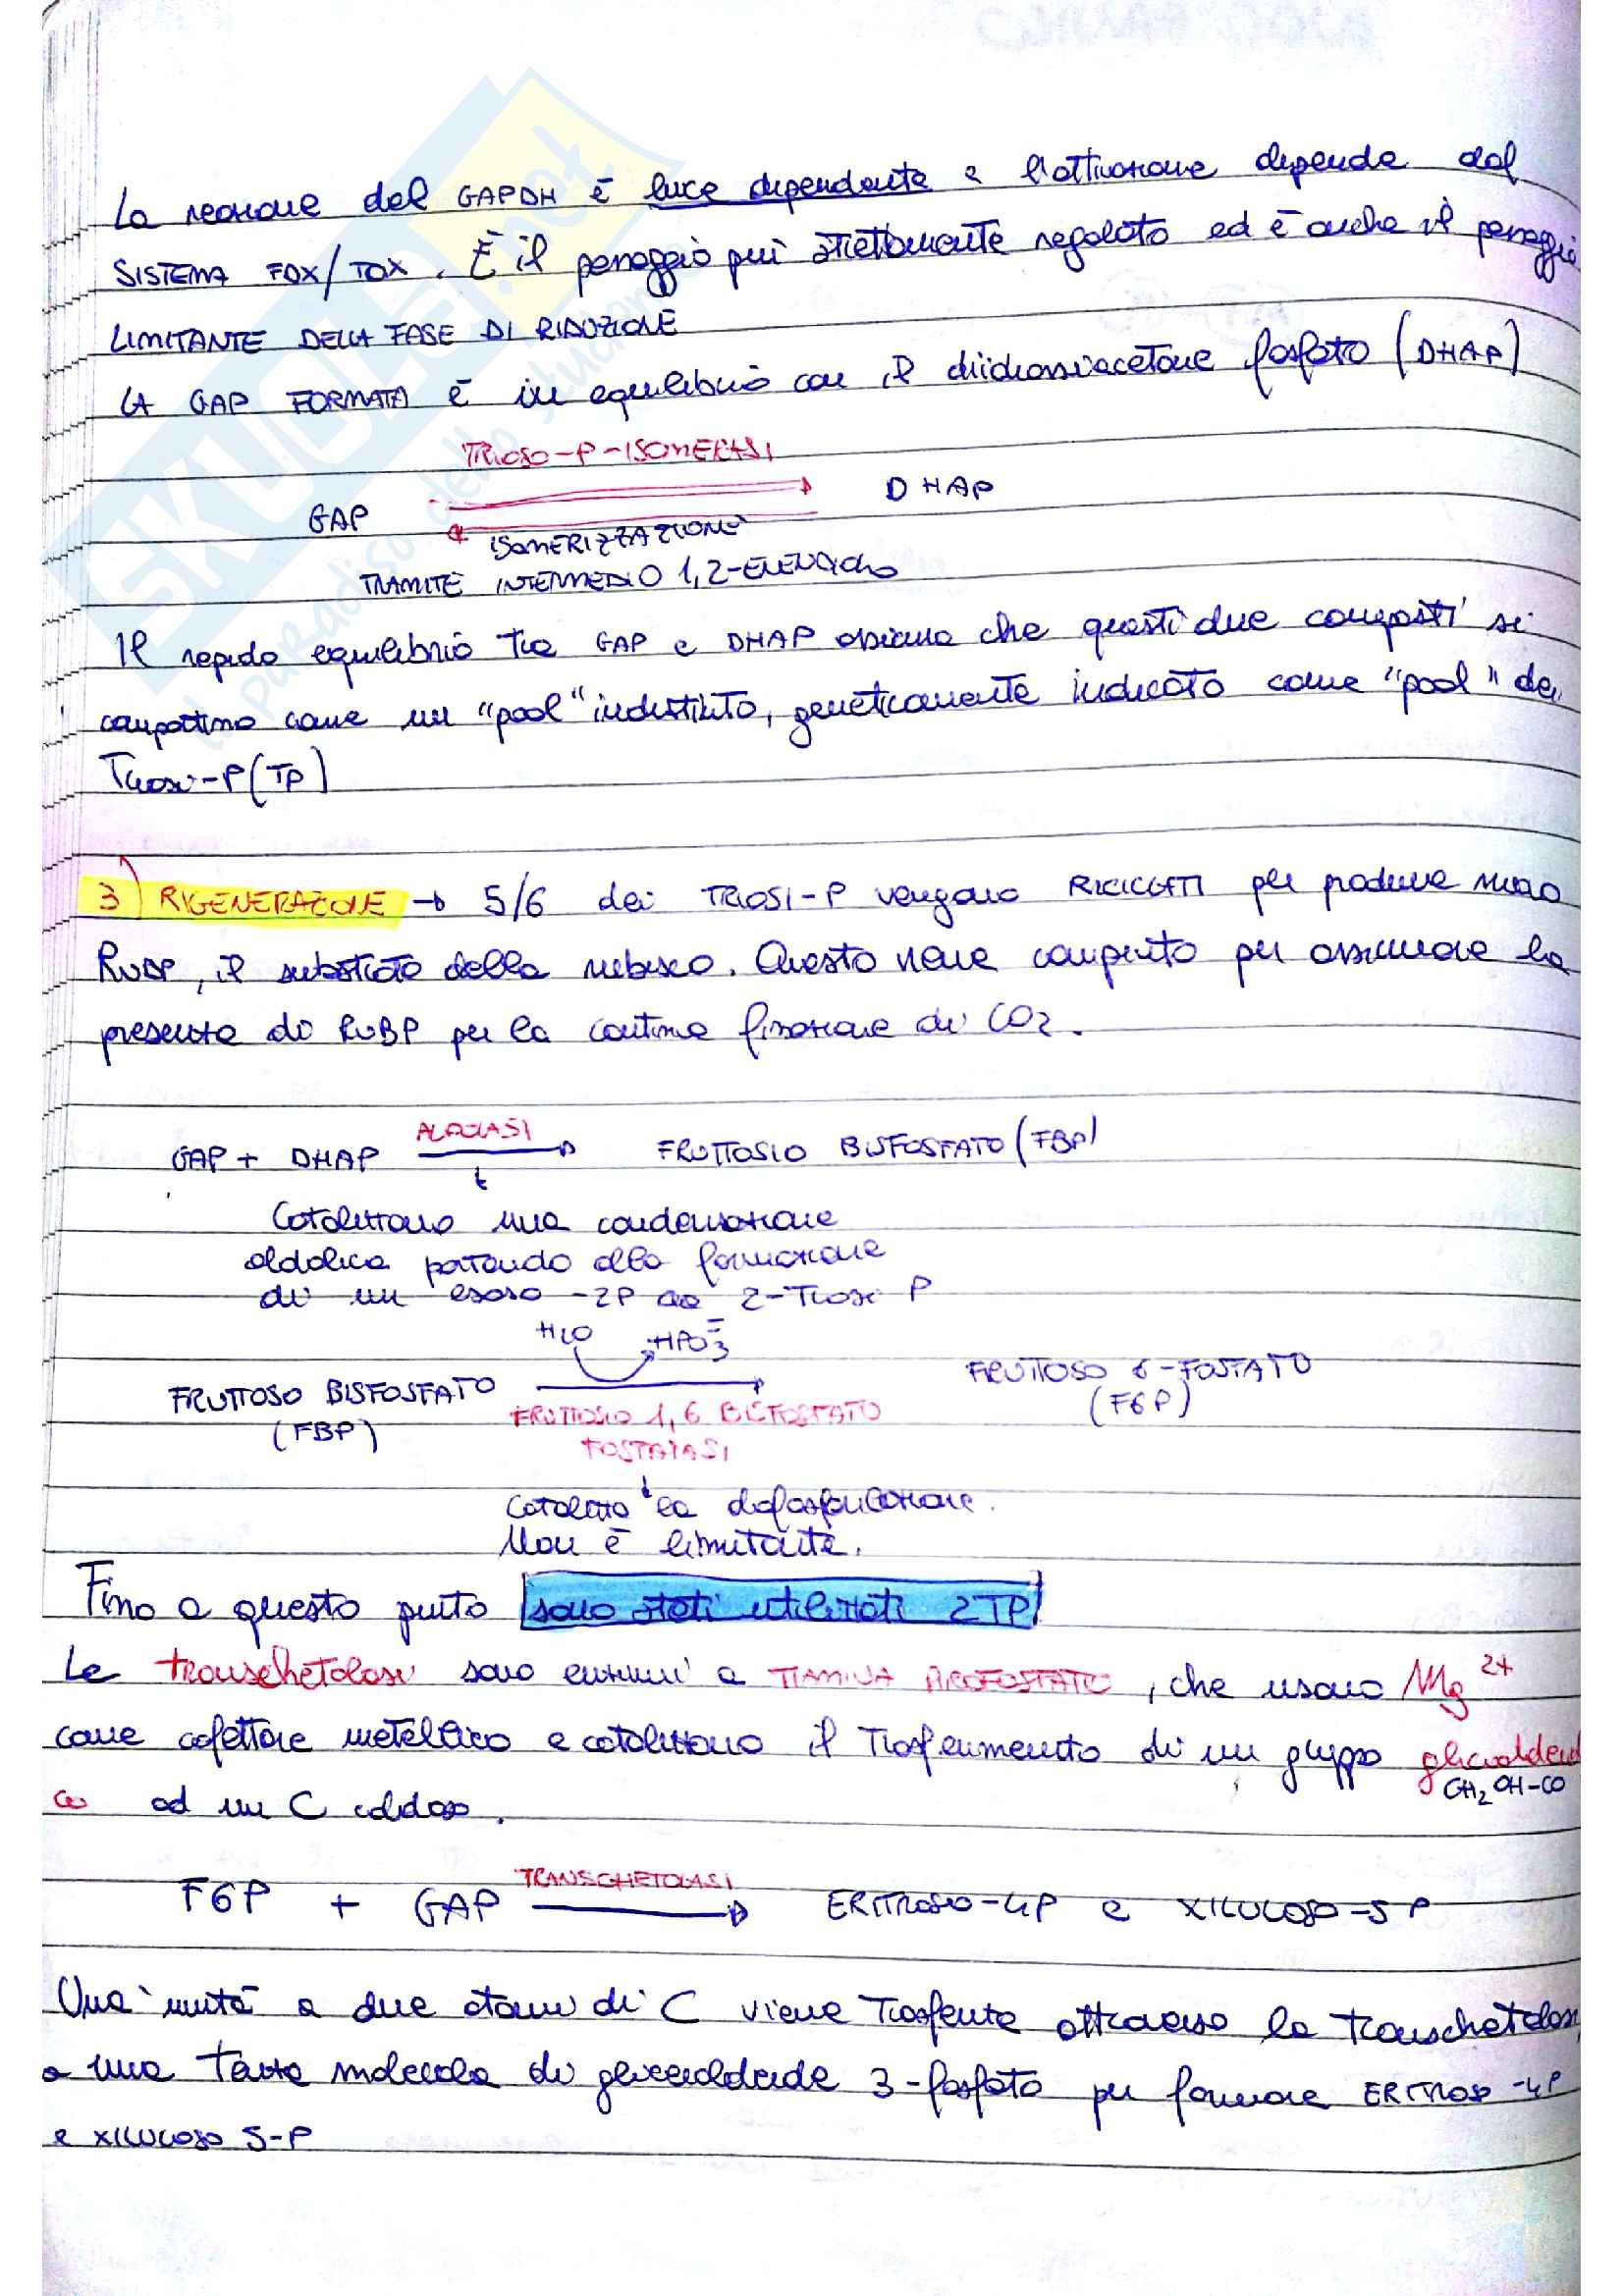 La reazione del GAPDH è luce dipendente e l'attivazione dipende dal
SISTEMA FDX/TDX. È il passaggio più strettamente regolato ed è anche il passaggio
LIMITANTE DELLA FASE DI RIDUZIONE
LA GAP FORMATA È in equilibrio con il diidrossiacetone fosfato (DHAP)
TRIOSO-P-ISOMERASI
GAP DHAP
ISOMERIZZAZIONE
TRAMITE INTERMEDIO 1,2-ENEDIOLO
Il rapido equilibrio tra GAP e DHAP assicura che questi due composti si
comportino come un "pool" indistinto, genericamente indicato come "pool" dei
Triosi-P (TP)
3) RIGENERAZIONE → 5/6 dei TRIOSI-P vengono RICICLATI per produrre nuovo
RuBP, il substrato della rubisco. Questo viene compiuto per assicurare la
presenza di RuBP per la continua fissazione di CO2.
ALDOLASI
GAP + DHAP → FRUTTOSIO BISFOSFATO (FBP)
Catalizzano una condensazione
aldolica portando alla formazione
di un esoso-2P da 2-Triosi P
H2O HPO3=
FRUTTOSO BISFOSFATO → FRUTTOSO 6-FOSFATO
(FBP) (F6P)
FRUTTOSIO 1,6 BISFOSFATO
FOSFATASI
Catalizza la defosforilazione.
Non è limitante.
Fino a questo punto sono stati utilizzati 2TP
Le transchetolasi sono enzimi a TIAMINA PIROFOSFATO, che usano Mg 2+
come cofattore metallico e catalizzano il Trasferimento di un gruppo glicoaldeid
CH2OH-CO
co ad un C aldoso.
TRANSCHETOLASI
F6P + GAP → ERITROSIO-4P e XILULOSO-5P
Una unità a due atomi di C viene Trasferita attraverso la transchetolasi
a una terza molecola di gliceraldeide 3-fosfato per formare ERITROSO-4P
e XILULOSO 5-P
SKUOLA.net
il paradiso dello studente